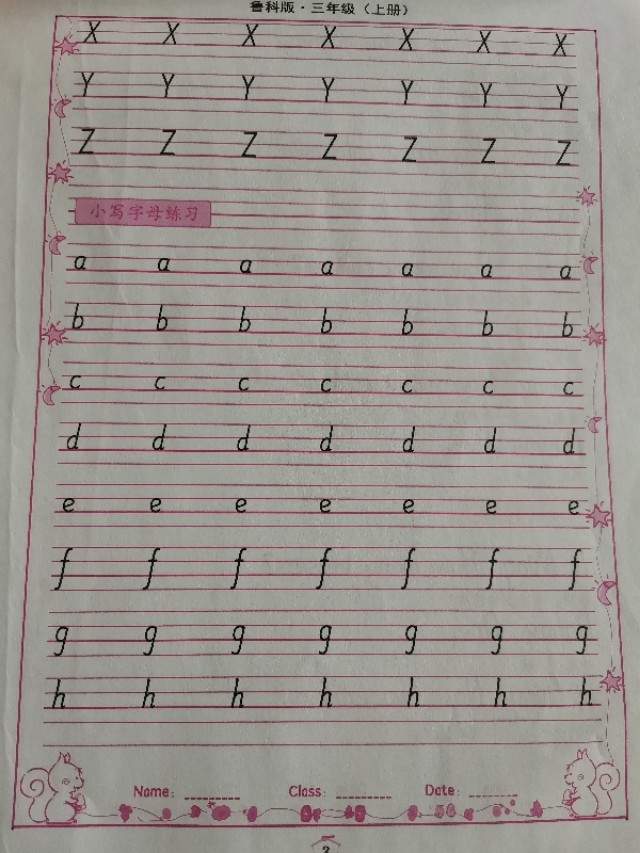 鲁科版·三年级（上册）
X X X X X X X
Y Y Y Y Y Y Y
Z Z Z Z Z Z Z
小写字母练习
a a a a a a a
b b b b b b b
c c c c c c c
d d d d d d d
e e e e e e e
f f f f f f f
g g g g g g g
h h h h h h h
Name: Class: Date:
3